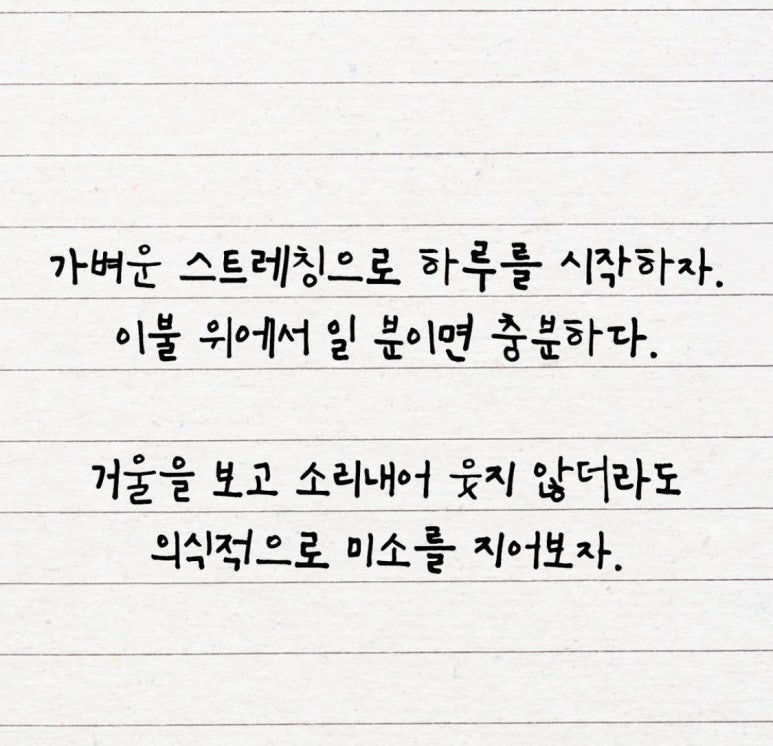 가벼운 스트레칭으로 하루를 시작하자.
이불 위에서 일 분이면 충분하다.
거울을 보고 소리내어 웃지 않더라도
의식적으로 미소를 지어보자.